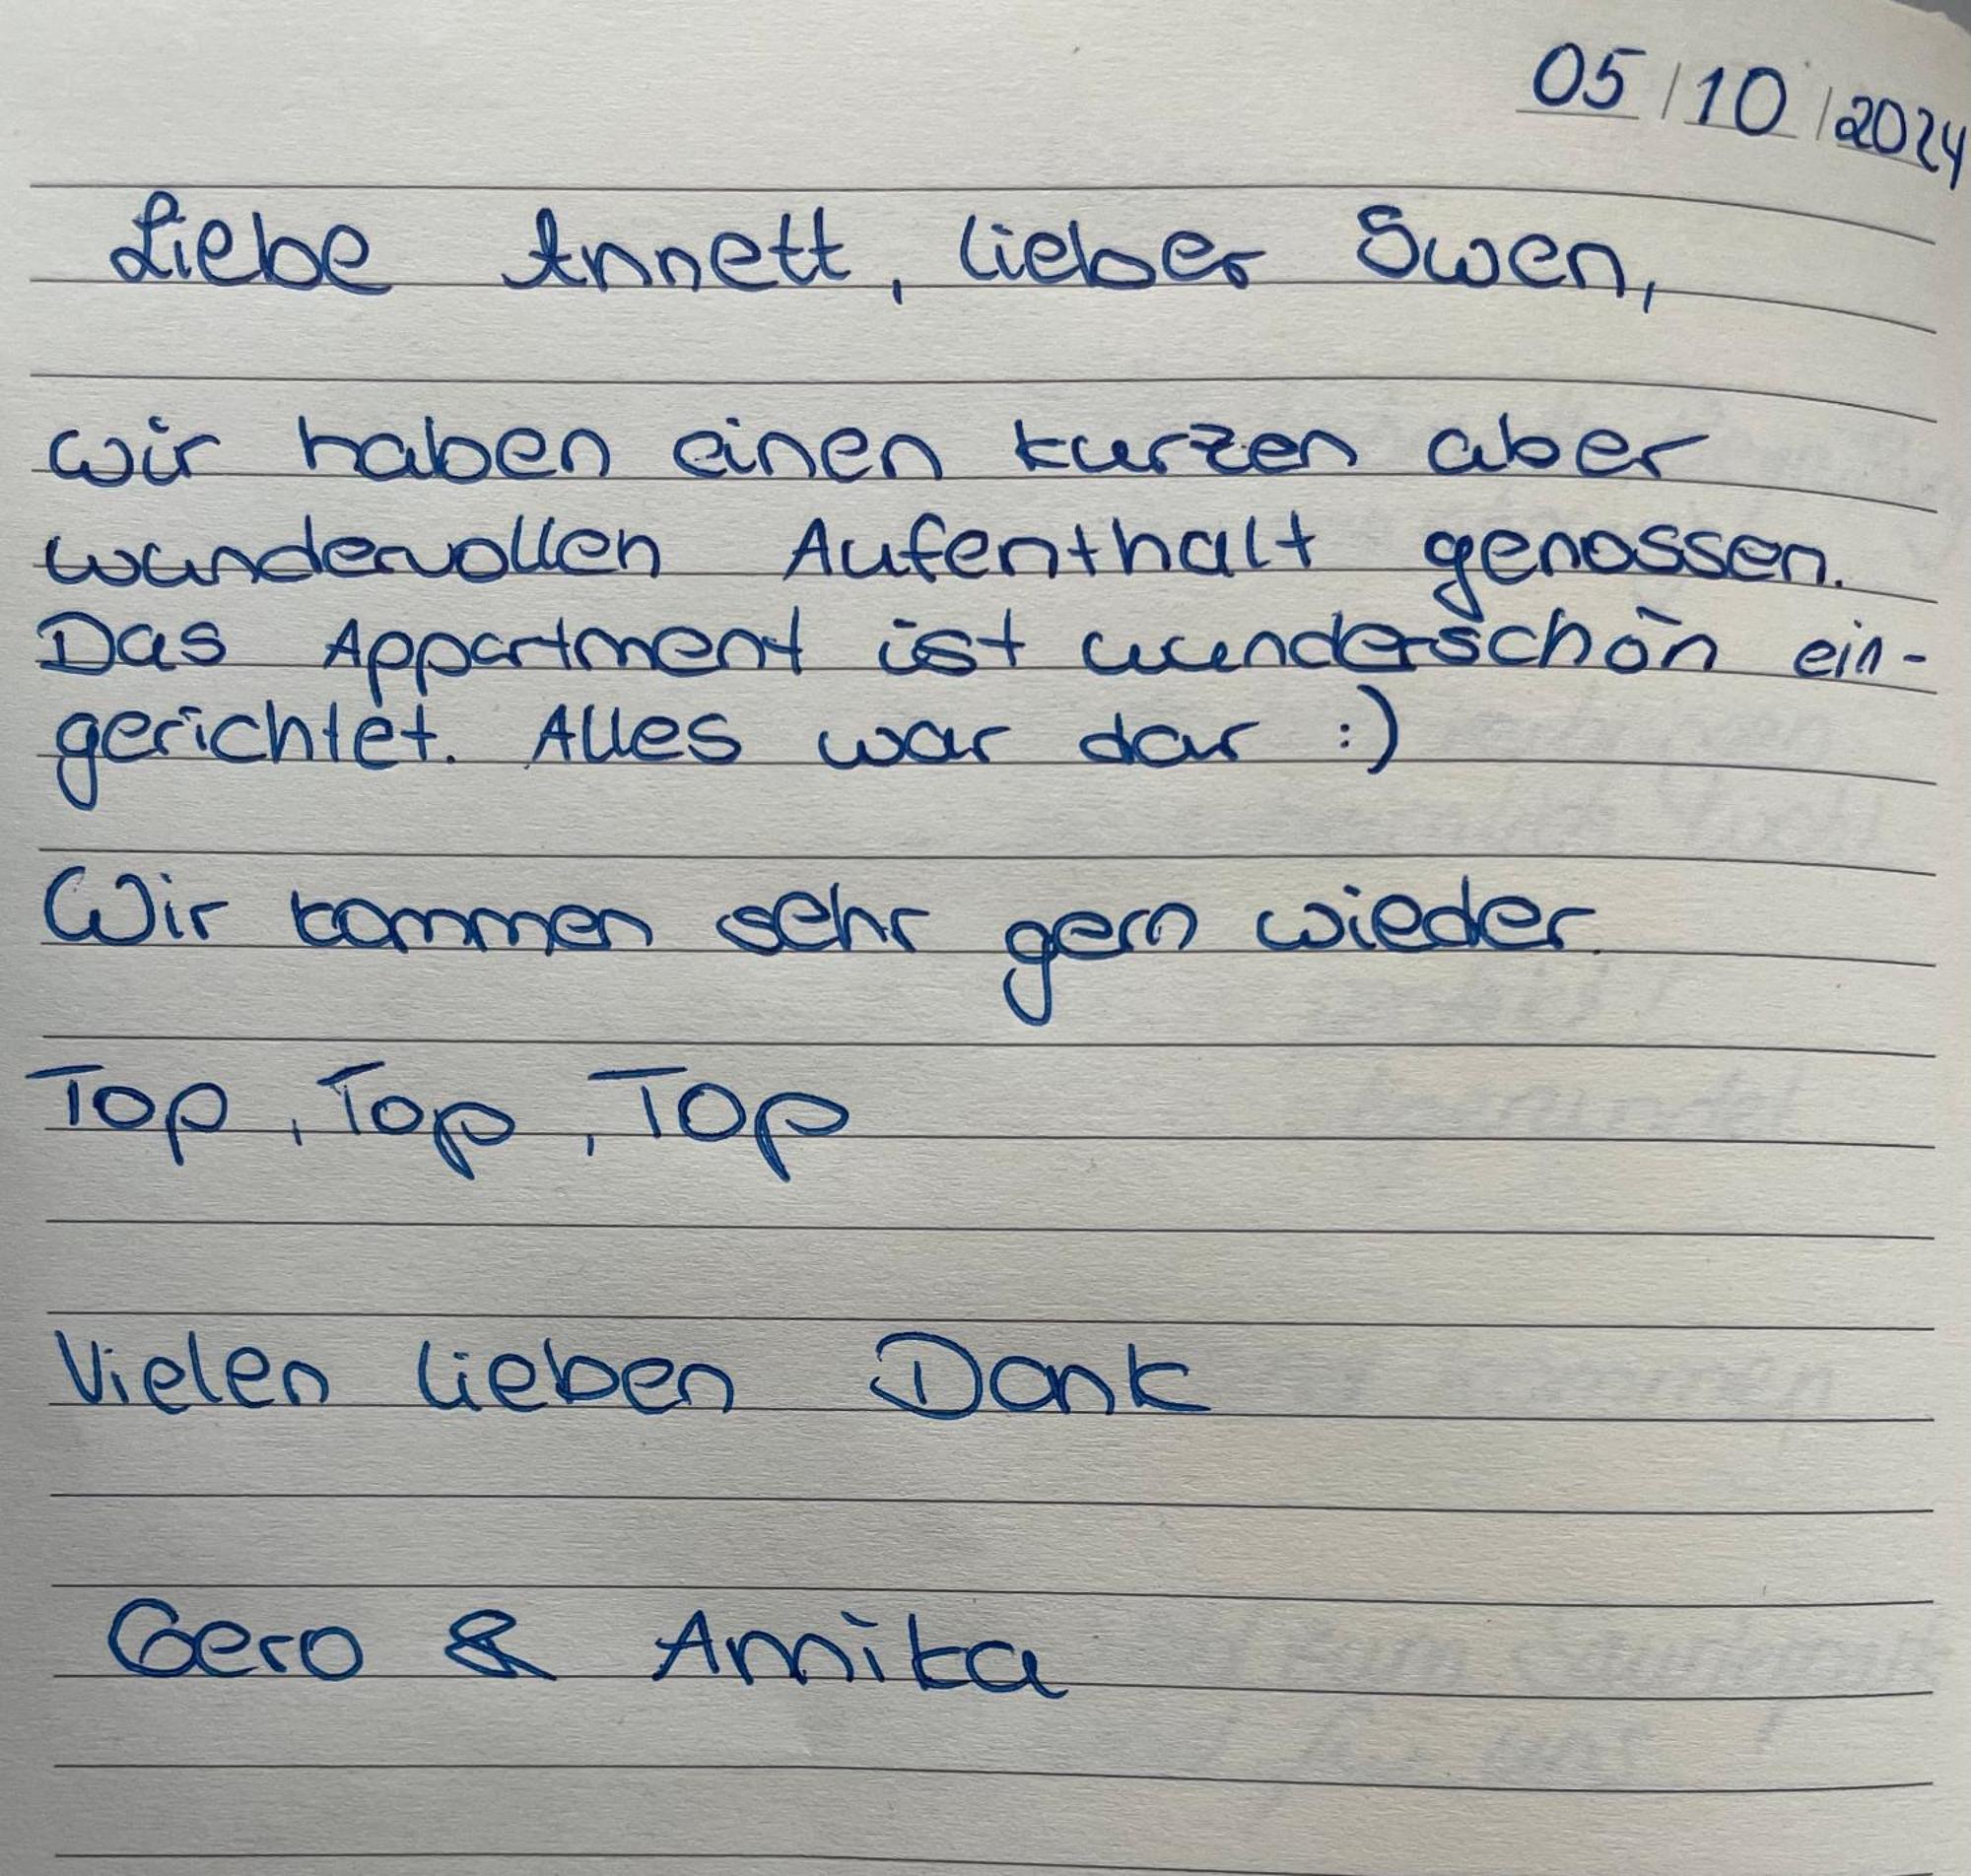 05/10/2024
Liebe Annett, lieber Swen,
wir haben einen kurzen aber
wundervollen Aufenthalt genossen.
Das Appartment ist wunderschön ein-
gerichtet. Alles war dar :)
Wir kommen sehr gern wieder.
Top, Top, Top
Vielen lieben Dank
Gero & Annika